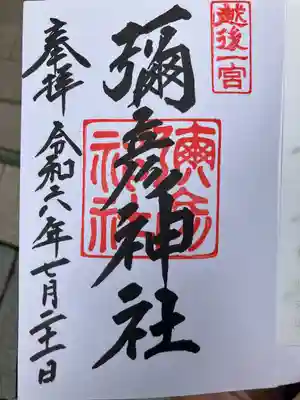 越後一宮
彌彦神社
彌彦神社
奉拝
令和六年七月二十一日